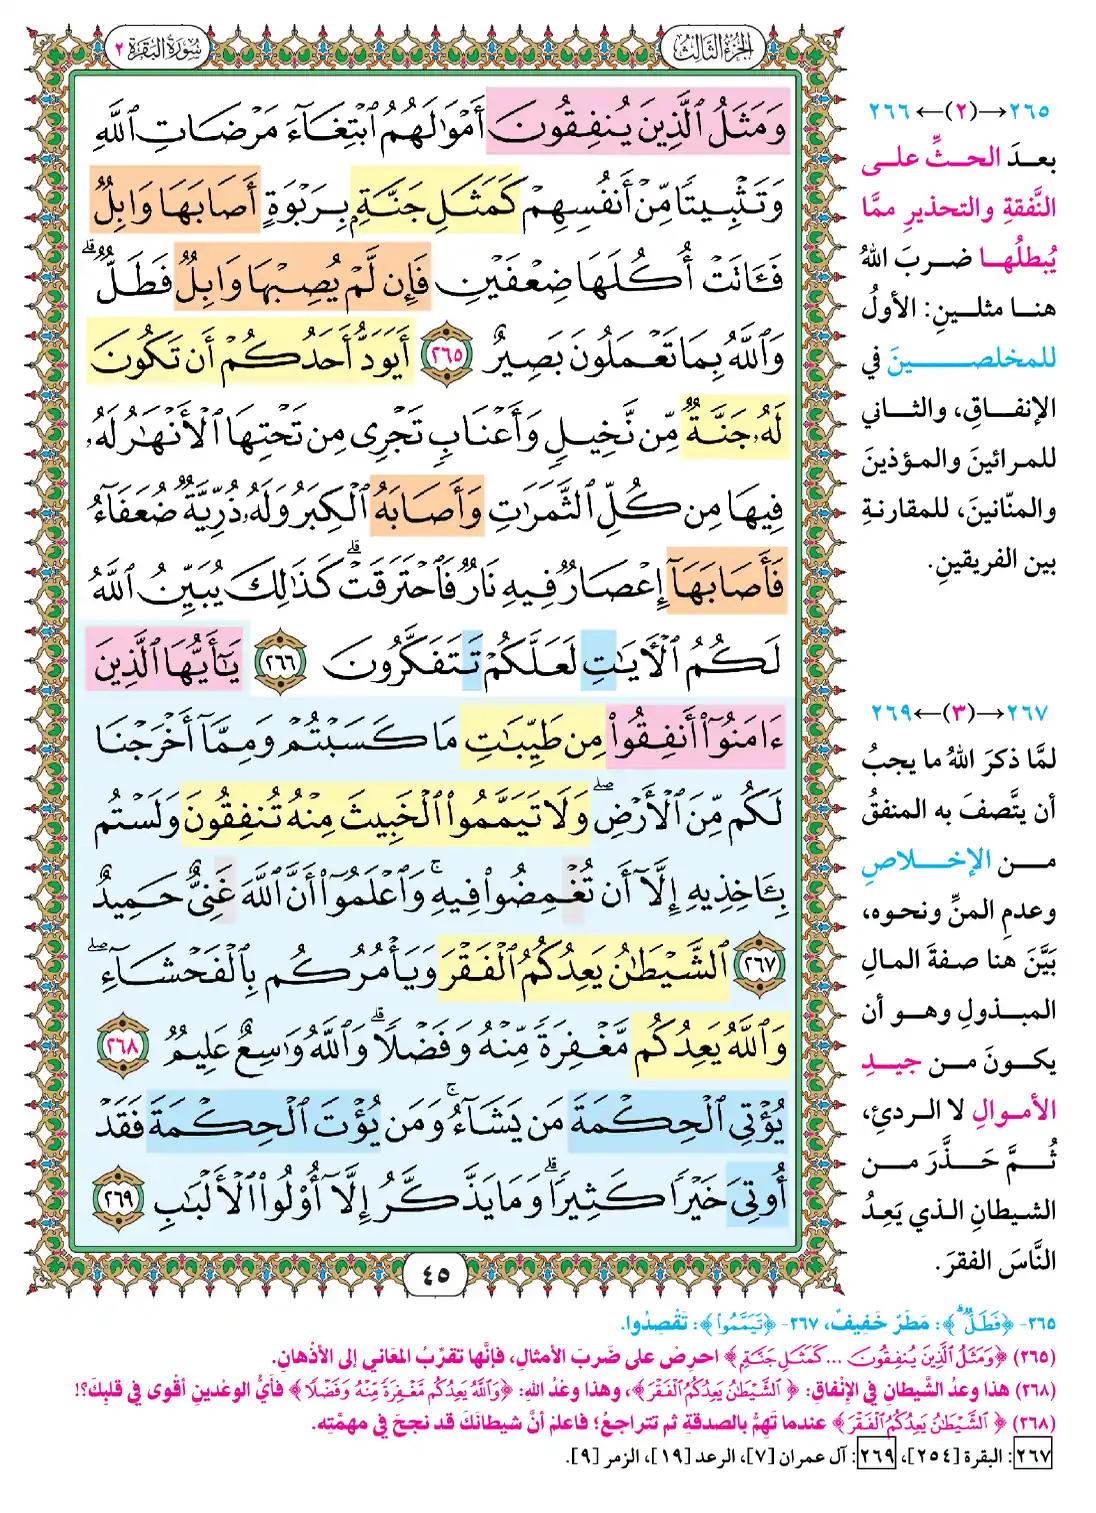 الجزء الثالث
سورة البقرة ٢
وَمَثَلُ ٱلَّذِينَ يُنفِقُونَ أَمۡوَٰلَهُمُ ٱبۡتِغَآءَ مَرۡضَاتِ ٱللَّهِ
وَتَثۡبِيتٗا مِّنۡ أَنفُسِهِمۡ كَمَثَلِ جَنَّةِۭ بِرَبۡوَةٍ أَصَابَهَا وَابِلٞ
فَـَٔاتَتۡ أُكُلَهَا ضِعۡفَيۡنِ فَإِن لَّمۡ يُصِبۡهَا وَابِلٞ فَطَلّٞۗ
وَٱللَّهُ بِمَا تَعۡمَلُونَ بَصِيرٌ ٢٦٥ أَيَوَدُّ أَحَدُكُمۡ أَن تَكُونَ
لَهُۥ جَنَّةٞ مِّن نَّخِيلٖ وَأَعۡنَابٖ تَجۡرِي مِن تَحۡتِهَا ٱلۡأَنۡهَٰرُ لَهُۥ
فِيهَا مِن كُلِّ ٱلثَّمَرَٰتِ وَأَصَابَهُ ٱلۡكِبَرُ وَلَهُۥ ذُرِّيَّةٞ ضُعَفَآءُ
فَأَصَابَهَآ إِعۡصَارٞ فِيهِ نَارٞ فَٱحۡتَرَقَتۡۗ كَذَٰلِكَ يُبَيِّنُ ٱللَّهُ
لَكُمُ ٱلۡأٓيَٰتِ لَعَلَّكُمۡ تَتَفَكَّرُونَ ٢٦٦ يَٰٓأَيُّهَا ٱلَّذِينَ
ءَامَنُوٓاْ أَنفِقُواْ مِن طَيِّبَٰتِ مَا كَسَبۡتُمۡ وَمِمَّآ أَخۡرَجۡنَا
لَكُم مِّنَ ٱلۡأَرۡضِۖ وَلَا تَيَمَّمُواْ ٱلۡخَبِيثَ مِنۡهُ تُنفِقُونَ وَلَسۡتُم
بِـَٔاخِذِيهِ إِلَّآ أَن تُغۡمِضُواْ فِيهِۚ وَٱعۡلَمُوٓاْ أَنَّ ٱللَّهَ غَنِيٌّ حَمِيدٌ
٢٦٧ ٱلشَّيۡطَٰنُ يَعِدُكُمُ ٱلۡفَقۡرَ وَيَأۡمُرُكُم بِٱلۡفَحۡشَآءِۖ
وَٱللَّهُ يَعِدُكُم مَّغۡفِرَةٗ مِّنۡهُ وَفَضۡلٗاۗ وَٱللَّهُ وَٰسِعٌ عَلِيمٞ ٢٦٨
يُؤۡتِي ٱلۡحِكۡمَةَ مَن يَشَآءُۚ وَمَن يُؤۡتَ ٱلۡحِكۡمَةَ فَقَدۡ
أُوتِيَ خَيۡرٗا كَثِيرٗاۗ وَمَا يَذَّكَّرُ إِلَّآ أُوْلُواْ ٱلۡأَلۡبَٰبِ ٢٦٩
٤٥
٢٦٥→(٢)←٢٦٦
بعدَ الحثِّ على
النَّفقةِ والتحذيرِ ممَّا
يُبطلُها ضربَ اللهُ
هنا مثلينِ: الأولُ
للمخلصينَ في
الإنفاقِ، والثاني
للمرائينَ والمؤذينَ
والمنّانينَ، للمقارنةِ
بين الفريقينِ.
٢٦٧→(٣)←٢٦٩
لمَّا ذكرَ اللهُ ما يجبُ
أن يتَّصفَ به المنفقُ
من الإخلاصِ
وعدمِ المنِّ ونحوه،
بَيَّنَ هنا صفةَ المالِ
المبذولِ وهو أن
يكونَ من جيدِ
الأموالِ لا الردئِ،
ثُمَّ حَذَّرَ من
الشيطانِ الذي يَعِدُ
النَّاسَ الفقرَ.
٢٦٥- ﴿فَطَلّٞۗ﴾: مَطَرٌ خَفِيفٌ، ٢٦٧- ﴿تَيَمَّمُواْ﴾: تَقْصِدُوا.
(٢٦٥) ﴿وَمَثَلُ ٱلَّذِينَ يُنفِقُونَ ... كَمَثَلِ جَنَّةِۭ﴾ احرِص على ضَربَ الأمثالِ، فإنَّها تقرِّبُ المعَاني إلى الأذْهانِ.
(٢٦٨) هذا وعدُ الشَّيطانِ في الإنْفاقِ: ﴿ٱلشَّيۡطَٰنُ يَعِدُكُمُ ٱلۡفَقۡرَ﴾، وهذا وعْدُ اللهِ: ﴿وَٱللَّهُ يَعِدُكُم مَّغۡفِرَةٗ مِّنۡهُ وَفَضۡلٗا﴾ فأيُّ الوعْدينِ أقْوى في قلبِكَ؟!
(٢٦٨) ﴿ٱلشَّيۡطَٰنُ يَعِدُكُمُ ٱلۡفَقۡرَ﴾ عندما تَهِمُّ بالصدقةِ ثم تتراجعُ؛ فاعلمْ أنَّ شيطانَكَ قد نجحَ في مهمَّتِه.
٢٦٧: البقرة [٢٥٤]، ٢٦٩: آل عمران [٧]، الرعد [١٩]، الزمر [٩].